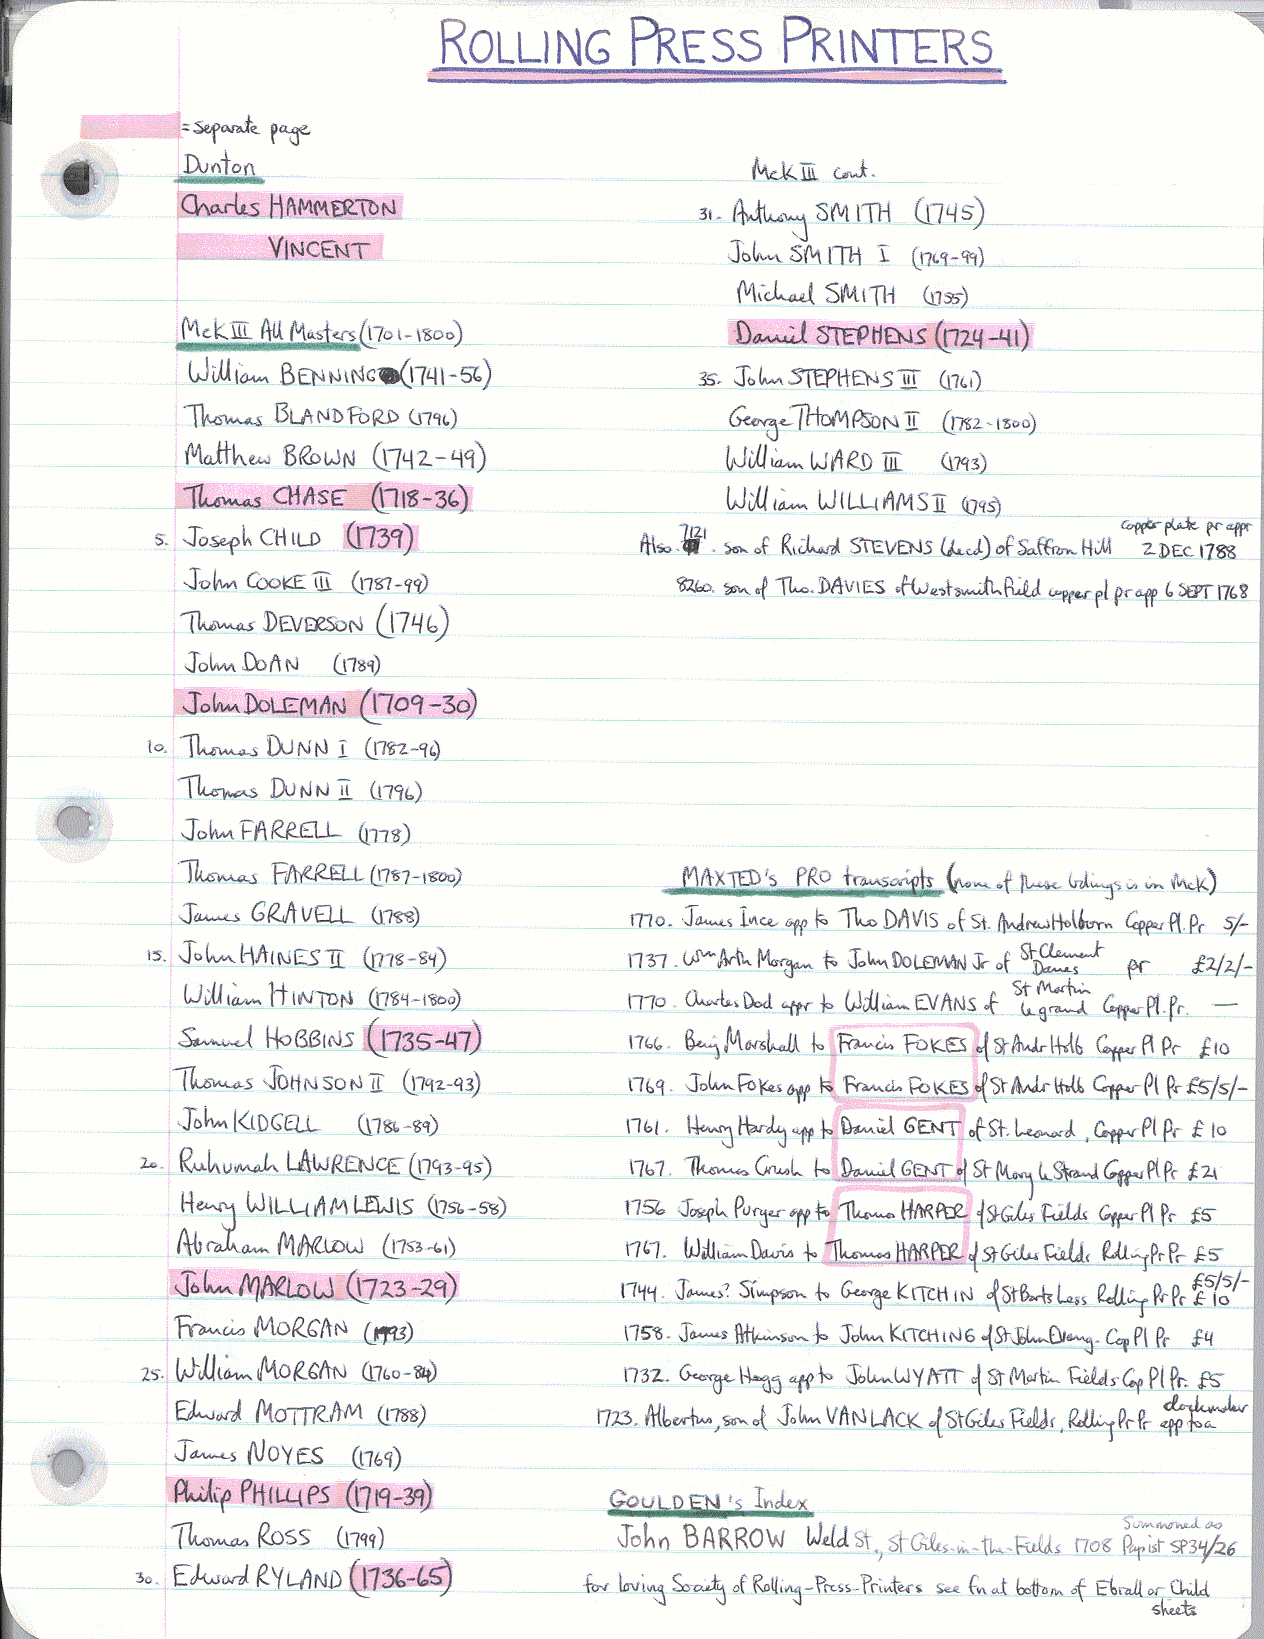 ROLLING PRESS PRINTERS
= separate page
Dunton
Charles HAMMERTON
VINCENT
McK III All Masters (1701-1800)
William BENNING (1741-56)
Thomas BLANDFORD (1796)
Matthew BROWN (1742-49)
Thomas CHASE (1718-36)
5. Joseph CHILD (1739)
John COOKE III (1787-99)
Thomas DEVERSON (1746)
John DOAN (1789)
John DOLEMAN (1709-30)
10. Thomas DUNN I (1782-96)
Thomas DUNN II (1796)
John FARRELL (1778)
Thomas FARRELL (1787-1800)
James GRAVELL (1788)
15. John HAINES II (1778-84)
William HINTON (1784-1800)
Samuel HOBBINS (1735-47)
Thomas JOHNSON II (1792-93)
John KIDGELL (1786-89)
20. Ruhumah LAWRENCE (1793-95)
Henry WILLIAM LEWIS (1756-58)
Abraham MARLOW (1753-61)
John MARLOW (1723-29)
Francis MORGAN (1793)
25. William MORGAN (1760-84)
Edward MOTTRAM (1788)
James NOYES (1769)
Philip PHILLIPS (1719-39)
Thomas ROSS (1799)
30. Edward RYLAND (1736-65)
McK III cont.
31. Anthony SMITH (1745)
John SMITH I (1769-99)
Michael SMITH (1755)
Daniel STEPHENS (1724-41)
35. John STEPHENS III (1761)
George THOMPSON II (1782-1800)
William WARD III (1793)
William WILLIAMS II (1795)
Also 7121. son of Richard STEVENS (decd) of Saffron Hill copper plate pr appr 2 DEC 1788
8260. son of Tho. DAVIES of Westsmithfield copper pl pr app 6 SEPT 1768
MAXTED's PRO transcripts (none of these bdings is in McK)
1770. James Ince app to Tho DAVIS of St. Andrew Holborn Copper Pl. Pr 5/-
1737. Wm Arth Morgan to John DOLEMAN Jr of St Clement Danes pr £2/2/-
1770. Charles Dod appr to William EVANS of St Martin le grand Copper Pl. Pr. —
1766. Benj Marshall to Francis FOKES of St Andr Holb Copper Pl Pr £10
1769. John Fokes app to Francis FOKES of St Andr Holb Copper Pl Pr £5/5/-
1761. Henry Hardy app to Daniel GENT of St. Leonard, Copper Pl Pr £10
1767. Thomas Crush to Daniel GENT of St Mary le Strand Copper Pl Pr £21
1756 Joseph Puryer app to Thomas HARPER of St Giles Fields Copper Pl Pr £5
1767. William Davis to Thomas HARPER of St Giles Fields Rolling Pr Pr £5
1744. James? Simpson to George KITCHIN of St Barts Less Rolling Pr Pr £5/5/- £10
1758. James Atkinson to John KITCHING of St John Evang. Cop Pl Pr £4
1732. George Hogg app to John WYATT of St Martin Fields Cop Pl Pr. £5
1723. Albertus, son of John VANLACK of St Giles Fields, Rolling Pr Pr app to a clockmaker
GOULDEN's Index
John BARROW Weld St., St Giles-in-the-Fields 1708 Summoned as Papist SP34/26
for loving Society of Rolling-Press-Printers see fn at bottom of Ebrall or Child
sheets